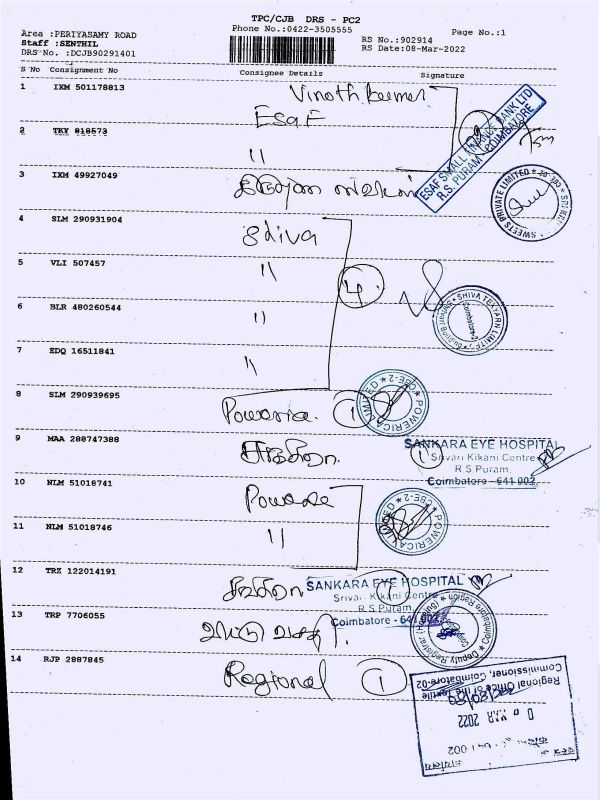 TPC/CJB DRS - PC2
Phone No.:0422-3505555
Page No.:1
Area :PERIYASAMY ROAD
Staff :SENTHIL
DRS No. :DCJB90291401
RS No.:902914
RS Date:08-Mar-2022
S No Consignment No Consignee Details Signature
1 IXM 501178813 Vinoth kumar
ESaF
2 TKY 818573 "
ESAF SMALL FINANCE BANK LTD
R.S. PURAM, COIMBATORE
3 IXM 49927049
SWEETS PRIVATE LIMITED
4 SLM 290931904 Shiva
5 VLI 507457 "
4
SHIVA TEXYARN LIMITED
Coimbatore-2
6 BLR 480260544 "
7 EDQ 16511841 "
8 SLM 290939695 Powerica 1
POWERICA LIMITED ★ CBE-2 ★
9 MAA 288747388 1
SANKARA EYE HOSPITAL
Srivari Kikani Centre
R.S Puram,
Coimbatore - 641 002
10 NLM 51018741
11 NLM 51018746 "
POWERICA LIMITED ★ CBE-2 ★
12 TRZ 122014191
SANKARA EYE HOSPITAL
Srivari Kikani Centre
R.S Puram,
Coimbatore - 641 002
13 TRP 7706055
Deputy Registrar (Housing) ★ Coimbatore Region ★
14 RJP 2887845 Regional 1
Regional Office of the Textile
Commissioner, Coimbatore-02
MAR 2022
641 002
कार्यालय